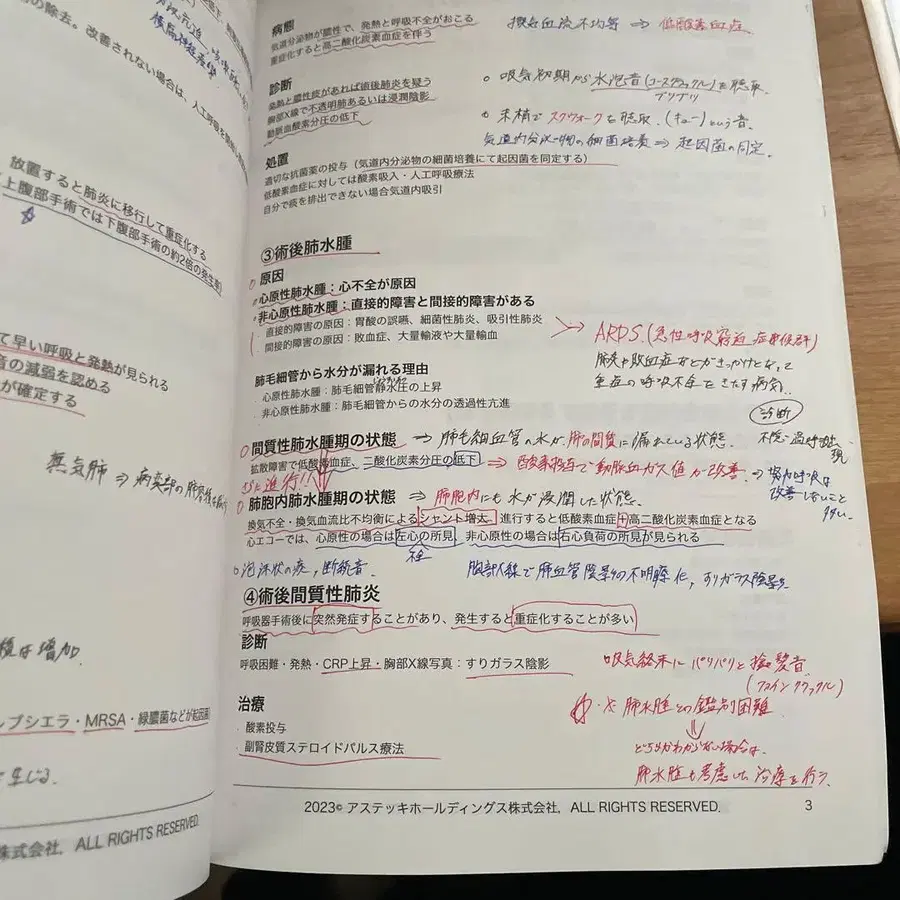 の除去。
改善されない場合は、人工呼吸を
放置すると肺炎に移行して重症化する
上腹部手術では下腹部手術の約2倍の発生率
て早い呼吸と発熱が見られる
音の減弱を認める
が確定する
無気肺 ⇒ 病変部の肺
は増加
レブシエラ・MRSA・緑膿菌などが起因菌
生じる。
株式会社, ALL RIGHTS RESERVED.
病態
気道分泌物が膿性で、発熱と呼吸不全がおこる
重症化すると高二酸化炭素血症を伴う
換気血流不均等 ⇒ 低酸素血症
診断
発熱と膿性痰があれば術後肺炎を疑う
胸部X線で不透明肺あるいは浸潤陰影
動脈血酸素分圧の低下
○ 吸気初期から水泡音(コースクラックル)を聴取。
ブツブツ
○ 末梢でスクウォークを聴取。(キュー)という音。
気道内分泌物の細菌培養 ⇒ 起因菌の同定。
処置
適切な抗菌薬の投与(気道内分泌物の細菌培養にて起因菌を同定する)
低酸素血症に対しては酸素吸入・人工呼吸療法
自分で痰を排出できない場合気道内吸引
③術後肺水腫
原因
心原性肺水腫:心不全が原因
非心原性肺水腫:直接的障害と間接的障害がある
直接的障害の原因:胃酸の誤嚥、細菌性肺炎、吸引性肺炎
間接的障害の原因:敗血症、大量輸液や大量輸血
ARDS.(急性呼吸窮迫症候群)
肺炎や敗血症などがきっかけとなって
重症の呼吸不全をきたす病気.
肺毛細管から水分が漏れる理由
心原性肺水腫:肺毛細管静水圧の上昇
非心原性肺水腫:肺毛細管からの水分の透過性亢進
診断
間質性肺水腫期の状態 ⇒ 肺毛細血管の水が、肺の間質に漏れている状態.
拡散障害で低酸素血症、二酸化炭素分圧の低下 ⇒ 酸素投与で動脈血ガス値が改善.
さらに進行!!
⇒ 努力呼吸は
改善しないこと
多い.
肺胞内肺水腫期の状態 ⇒ 肺胞内にも水が浸潤した状態.
換気不全・換気血流比不均衡によるシャント増大。進行すると低酸素血症+高二酸化炭素血症となる
心エコーでは、心原性の場合は左心の所見、非心原性の場合は右心負荷の所見が見られる
○ 泡沫状の痰, 断続音.
胸部X線で肺血管陰影の不明瞭化, すりガラス陰影
④術後間質性肺炎
呼吸器手術後に突然発症することがあり、発生すると重症化することが多い
診断
呼吸困難・発熱・CRP上昇・胸部X線写真:すりガラス陰影
吸気終末にパリパリと捻髪音
(ファインクラックル)
治療
酸素投与
副腎皮質ステロイドパルス療法
肺水腫との鑑別困難
⇓
どちらかわからない場合は.
肺水腫も考慮した治療を行う
2023© アステッキホールディングス株式会社, ALL RIGHTS RESERVED.
3